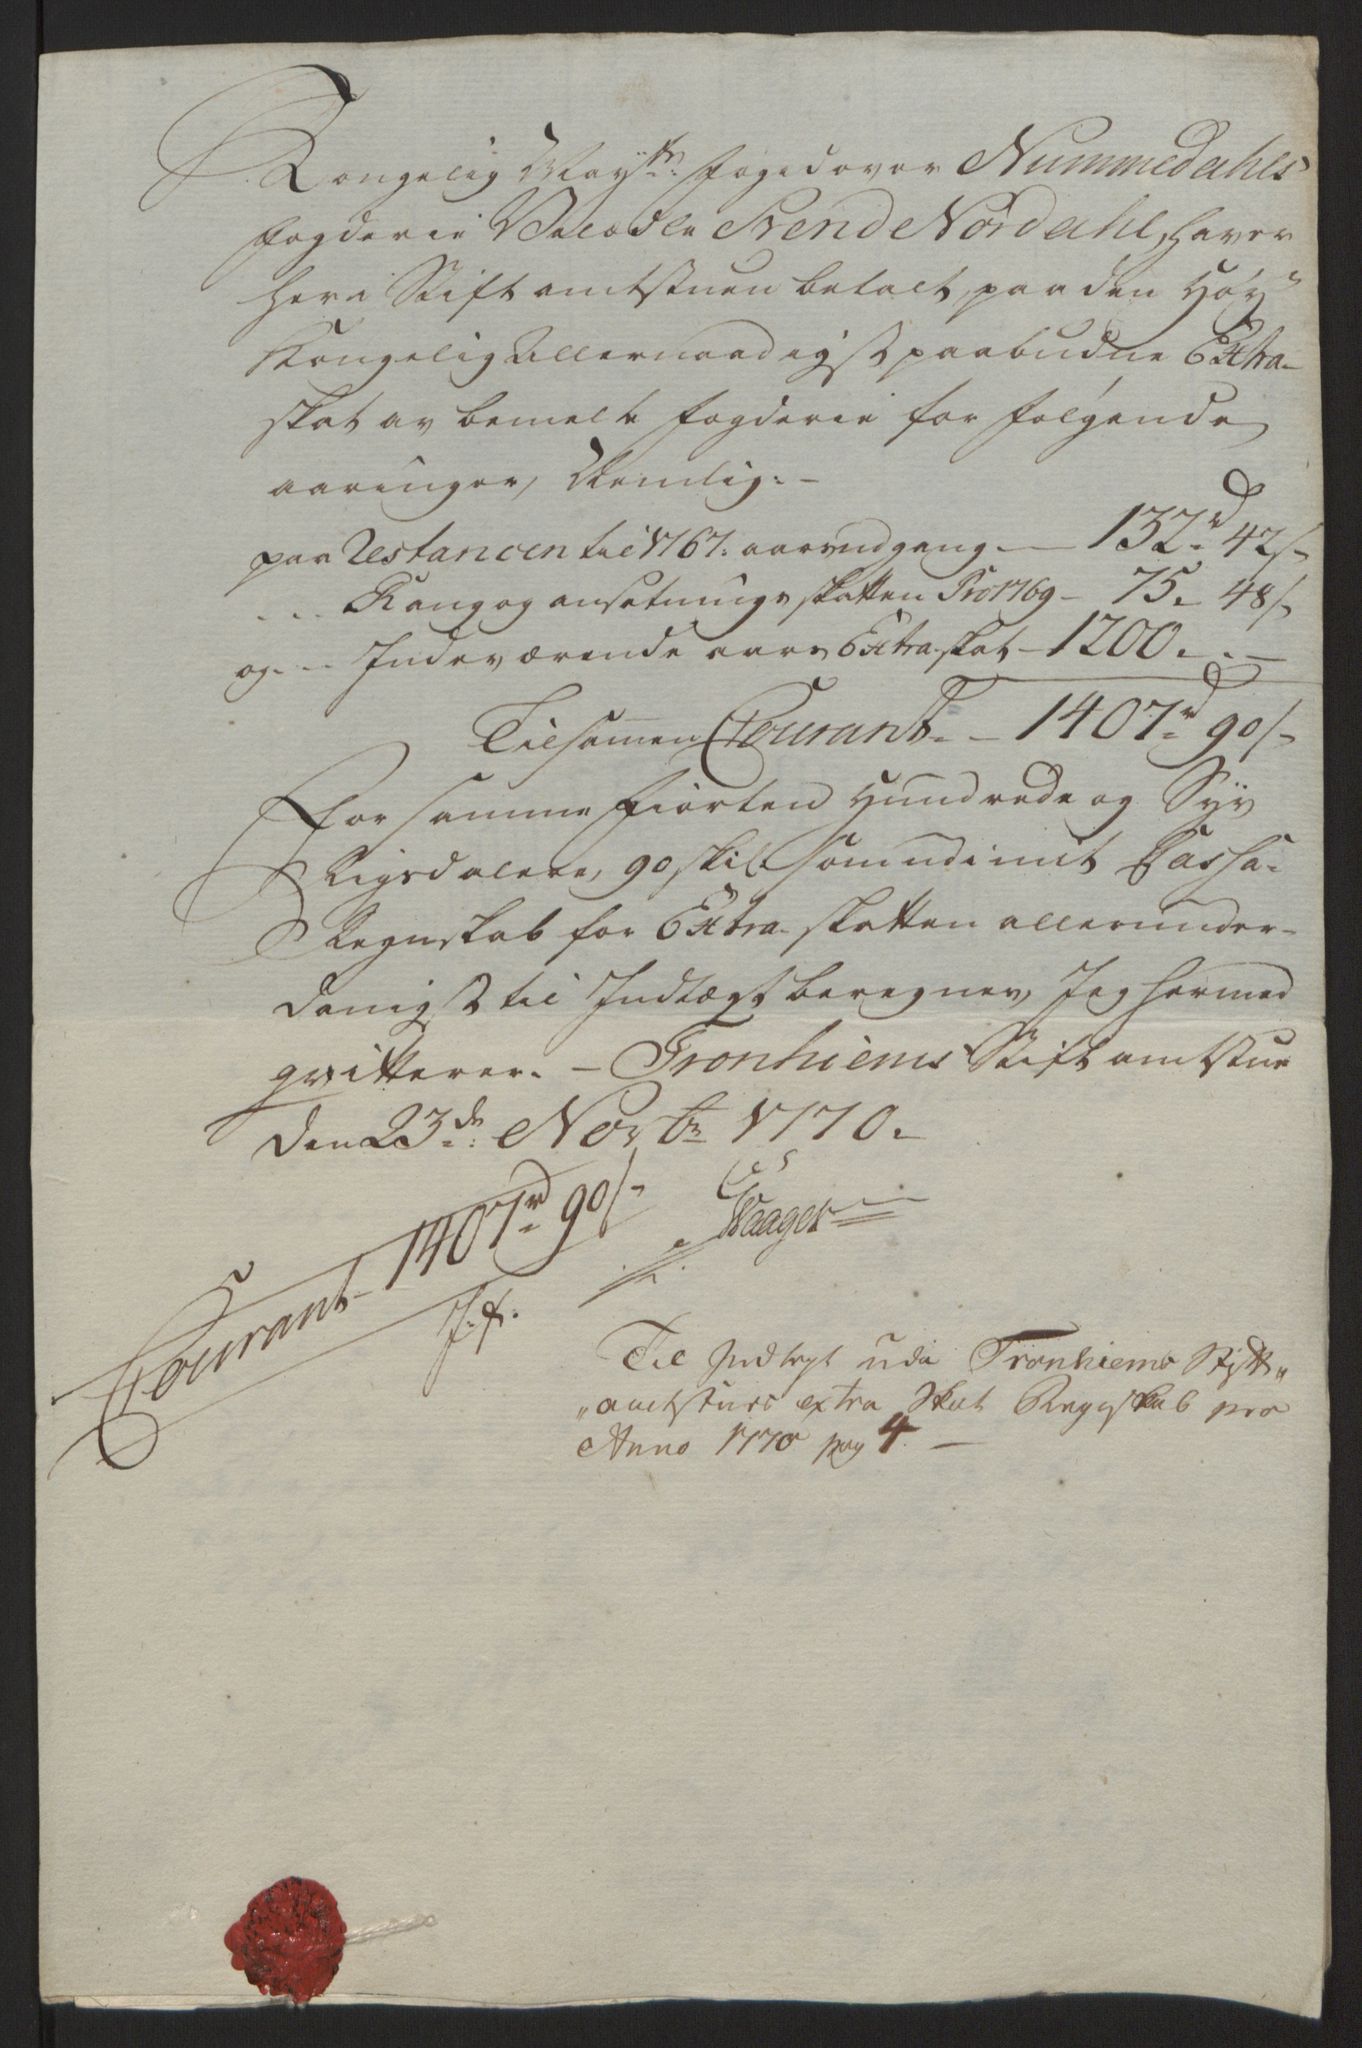 Kongelig Mayts: foged over Nummedahls
fogderie Velædle Svend Nordahl, haver
her i Stiftamtstuen betalt, paa den Høy
Kongelig Allernaadigst paabudne Extra-
skat av bemelte fogderie for følgende
aaringer, Nemlig:-
paa Restancen til 1767: aars udgang - 132rd 42s
... Rang og ansætnings skatten Pro 1769 - 75. 48s
og ... Indeværende aars Extra skat - 1200. . -
Tilsammen Courant - 1407rd 90s
For samme fiorten Hundrede og Syv
Rigsdalere, 90 skil som udi mit Cassa-
Regnskab for Extra-skatten allerunder-
danigst til Indtægt beregnes, Jeg hermed
qvitterer. - Tronhiems Stiftamtstue
den 23de: Novbr 1770.
Waager
Courant 1407rd 90s
Til Indtegt udi Tronhiems Stift„
„amtstues extra Skat Regnskab pro
Anno 1770 pag 4. -